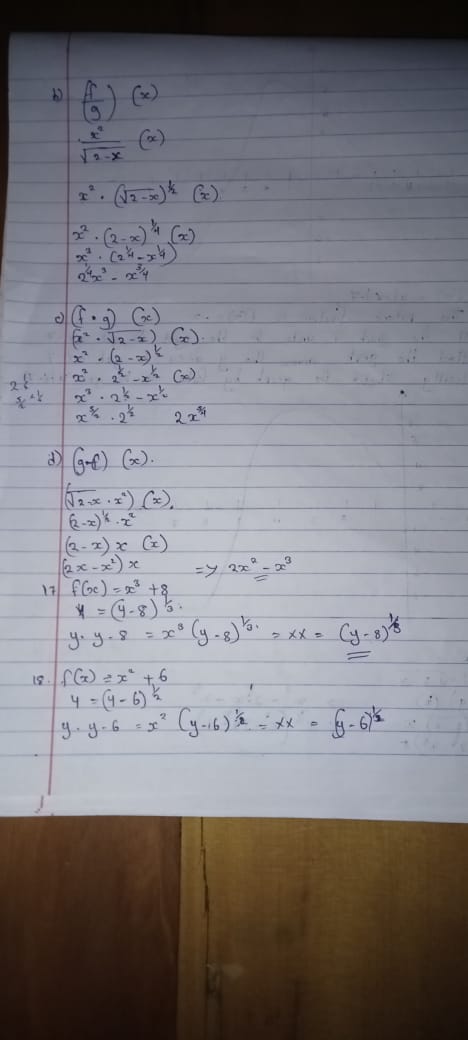 b) (f/g) (x)
x²/√2-x (x)
x² · (√2-x)^½ (x)
x² · (2-x)^¼ (x)
x³ · (2^¼ - x^¼)
2^¼x³ - x^¾
c) (f · g) (x)
(x² · √2-x) (x).
x² · (2-x)^½
x² · 2^½ - x^½ (x)
x³ · 2^½ - x^½
x^⁵⁄₂ · 2^½ 2x^¾
d) (g·f) (x).
(√2-x · x²) (x).
(2-x)^½ · x²
(2-x) x (x)
(2x-x²) x => 2x² - x³
17. f(x) = x³ + 8
y = (y-8)^⅓.
y· y-8 = x³ (y-8)^⅓. = xx = (y-8)^⅓
18. f(x) = x² + 6
y = (y-6)^½
y· y-6 = x² (y-16)^½ = xx = (y-6)^½